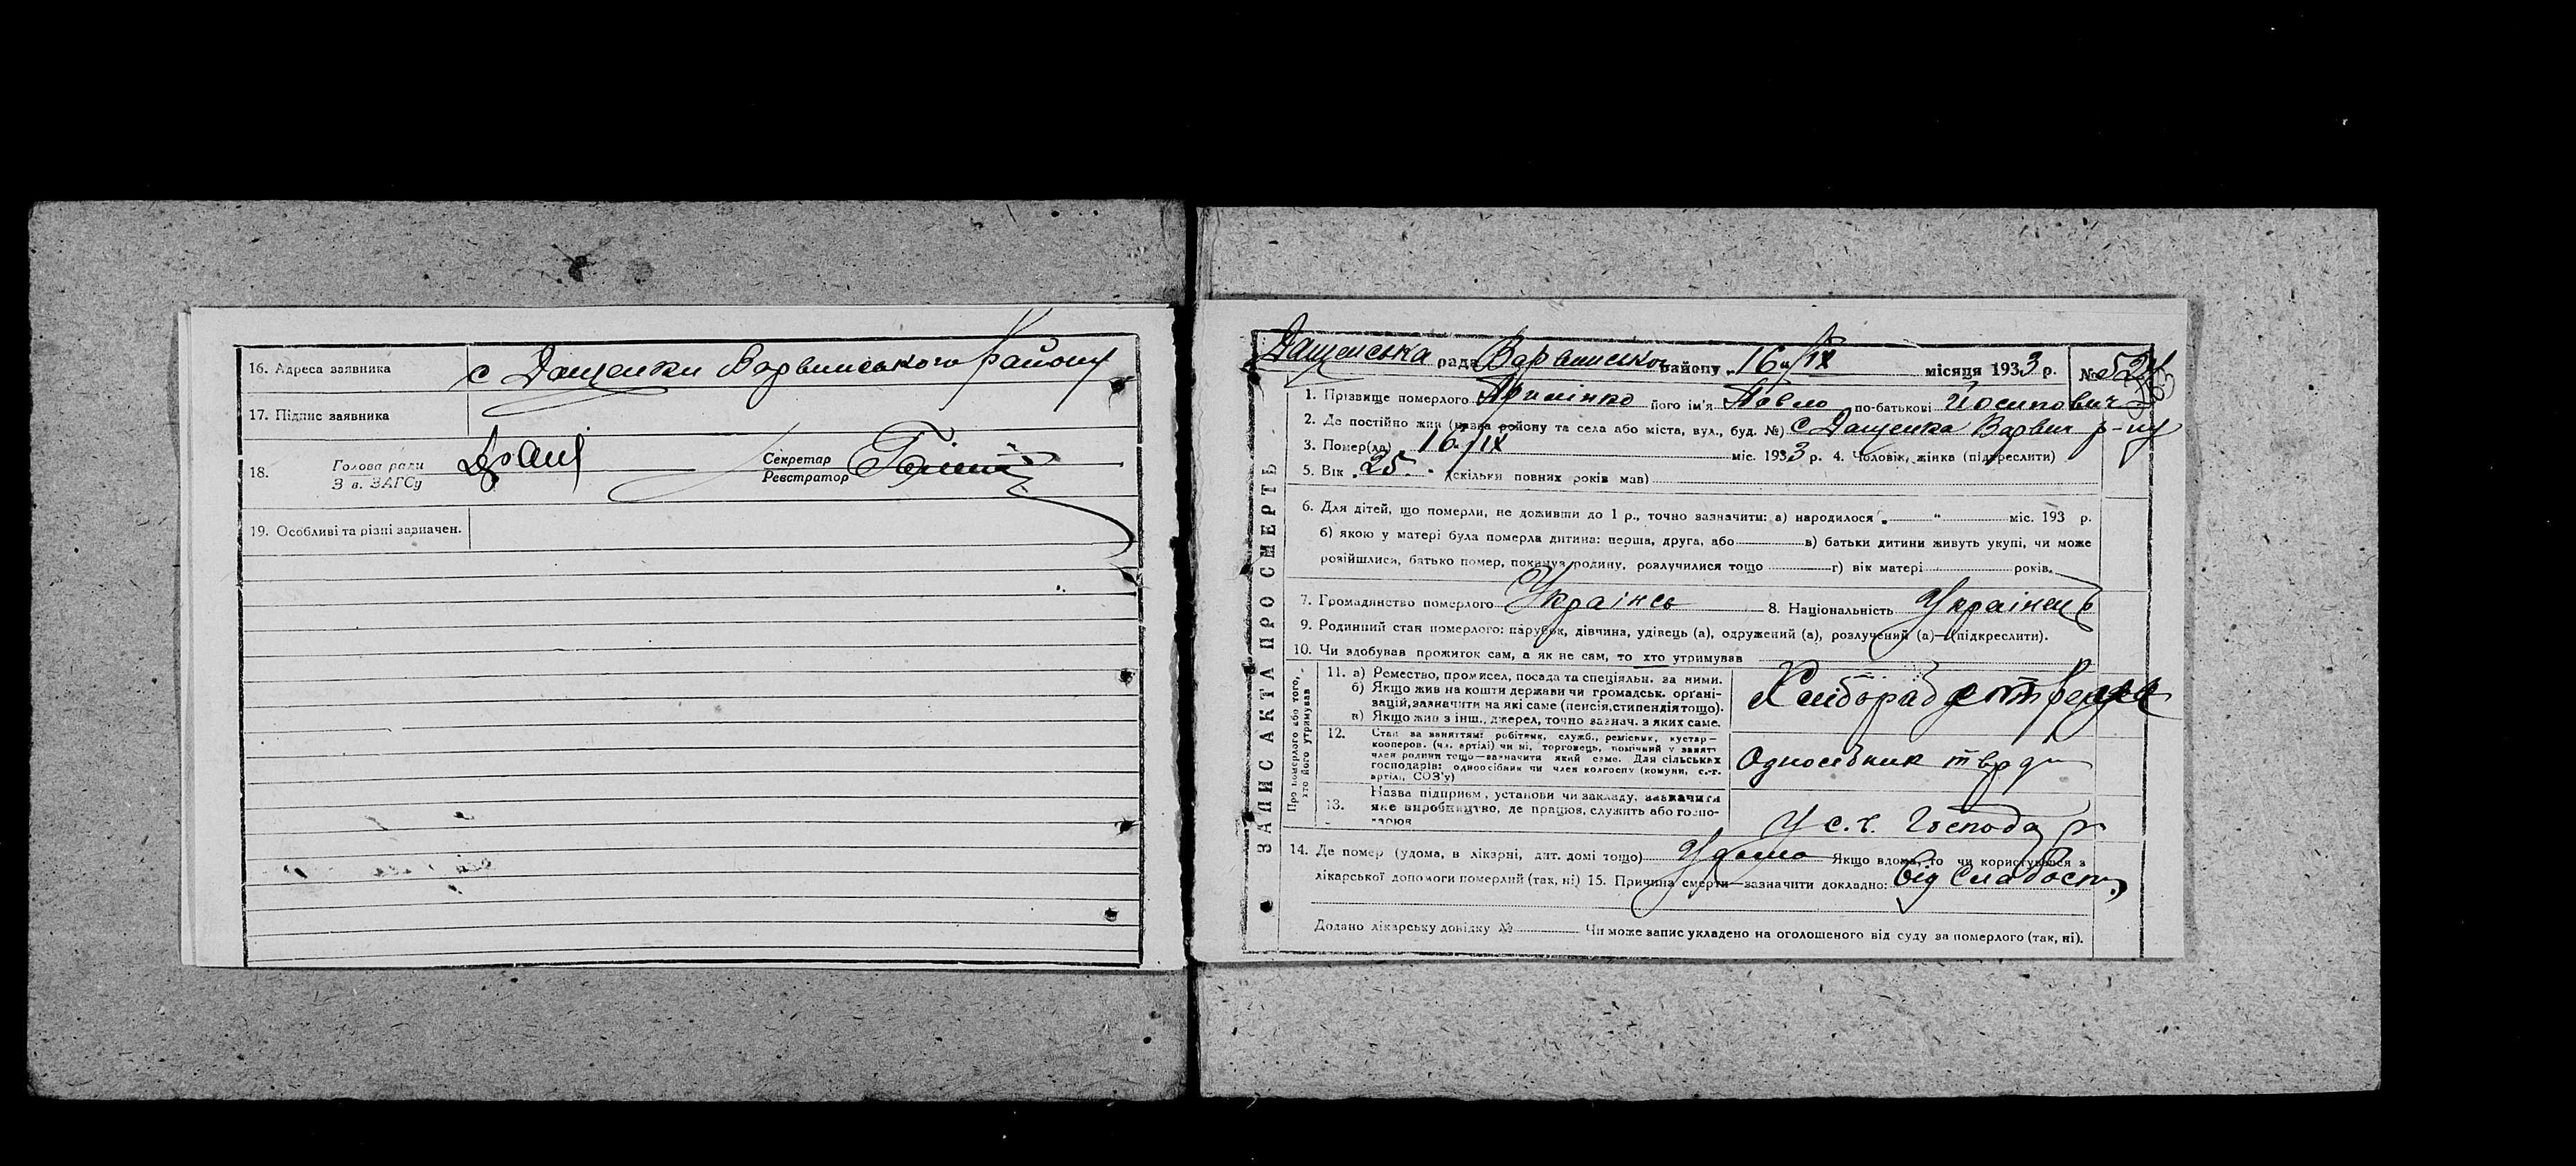 16. Адреса заявника с Дащенки Варвинського району
17. Підпис заявника
18. Голова ради
З в. ЗАГСу
Секретар
Реєстратор
19. Особливі та різні зазначен.
ЗАПИС АКТА ПРО СМЕРТЬ
Дащенська рада Варвинсько району „16“ IX місяця 1933 р. №
1. Прізвище померлого його ім'я Павло по-батькові Йосипович
2. Де постійно жив (назва району та села або міста, вул., буд. №) с Дащенка Варвин р-ну
3. Помер(ла) 16/IX міс. 1933 р. 4. Чоловік, жінка (підкреслити)
5. Вік „ “ (скільки повних років мав)
6. Для дітей, що померли, не доживши до 1 р., точно зазначити: а) народилося „ “ міс. 193 р.
б) якою у матері була померла дитина: перша, друга, або в) батьки дитини живуть укупі, чи може
розійшлися, батько помер, покинув родину, розлучилися тощо г) вік матері років.
7. Громадянство померлого Українсь 8. Національність Українець
9. Родинний стан померлого: парубок, дівчина, удівець (а), одружений (а), розлучений (а)—(підкреслити).
10. Чи здобував прожиток сам, а як не сам, то хто утримував
Про померлого або того, хто його утримував
11. а) Ремество, промисел, посада та спеціяльн. за ними.
б) Якщо жив на кошти держави чи громадськ. органі-
зацій, зазначити на які саме (пенсія, стипендія тощо).
в) Якщо жив з інш., джерел, точно зазнач. з яких саме.
12. Стан за заняттям: робітник, служб., ремісник, кустар-
кооперов. (чл. артілі) чи ні, торговець, помічний у занят.
член родини тощо—зазначити який саме. Для сільських
господарів: одноосібник чи член колгоспу (комуни, с.-г.
артілі, СОЗ'у)
Одноосібник
13. Назва підприєм., установи чи закладу, зазначити
яке виробництво, де працюв, служить або госпо-
У с.г. Господар
14. Де помер (удома, в лікарні, дит. домі тощо) Удома Якщо вдома, то чи користувався з
лікарської допомоги померлий (так, ні) 15. Причина смерти—зазначити докладно: Від Слабости
Додано лікарську довідку № Чи може запис укладено на оголошеного від суду за померлого (так, ні).